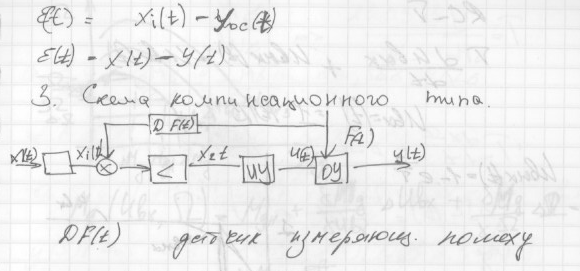 ℰ(t) = Xi(t) - Yос(t)
ℰ(t) - X(t) - Y(t)
3. Схема компинсационного типа.
DF(t)
F(t)
X(t) Xi(t) X < X₂t ИУ U(t) ОУ y(t)
DF(t) датчик измеряющ. помеху